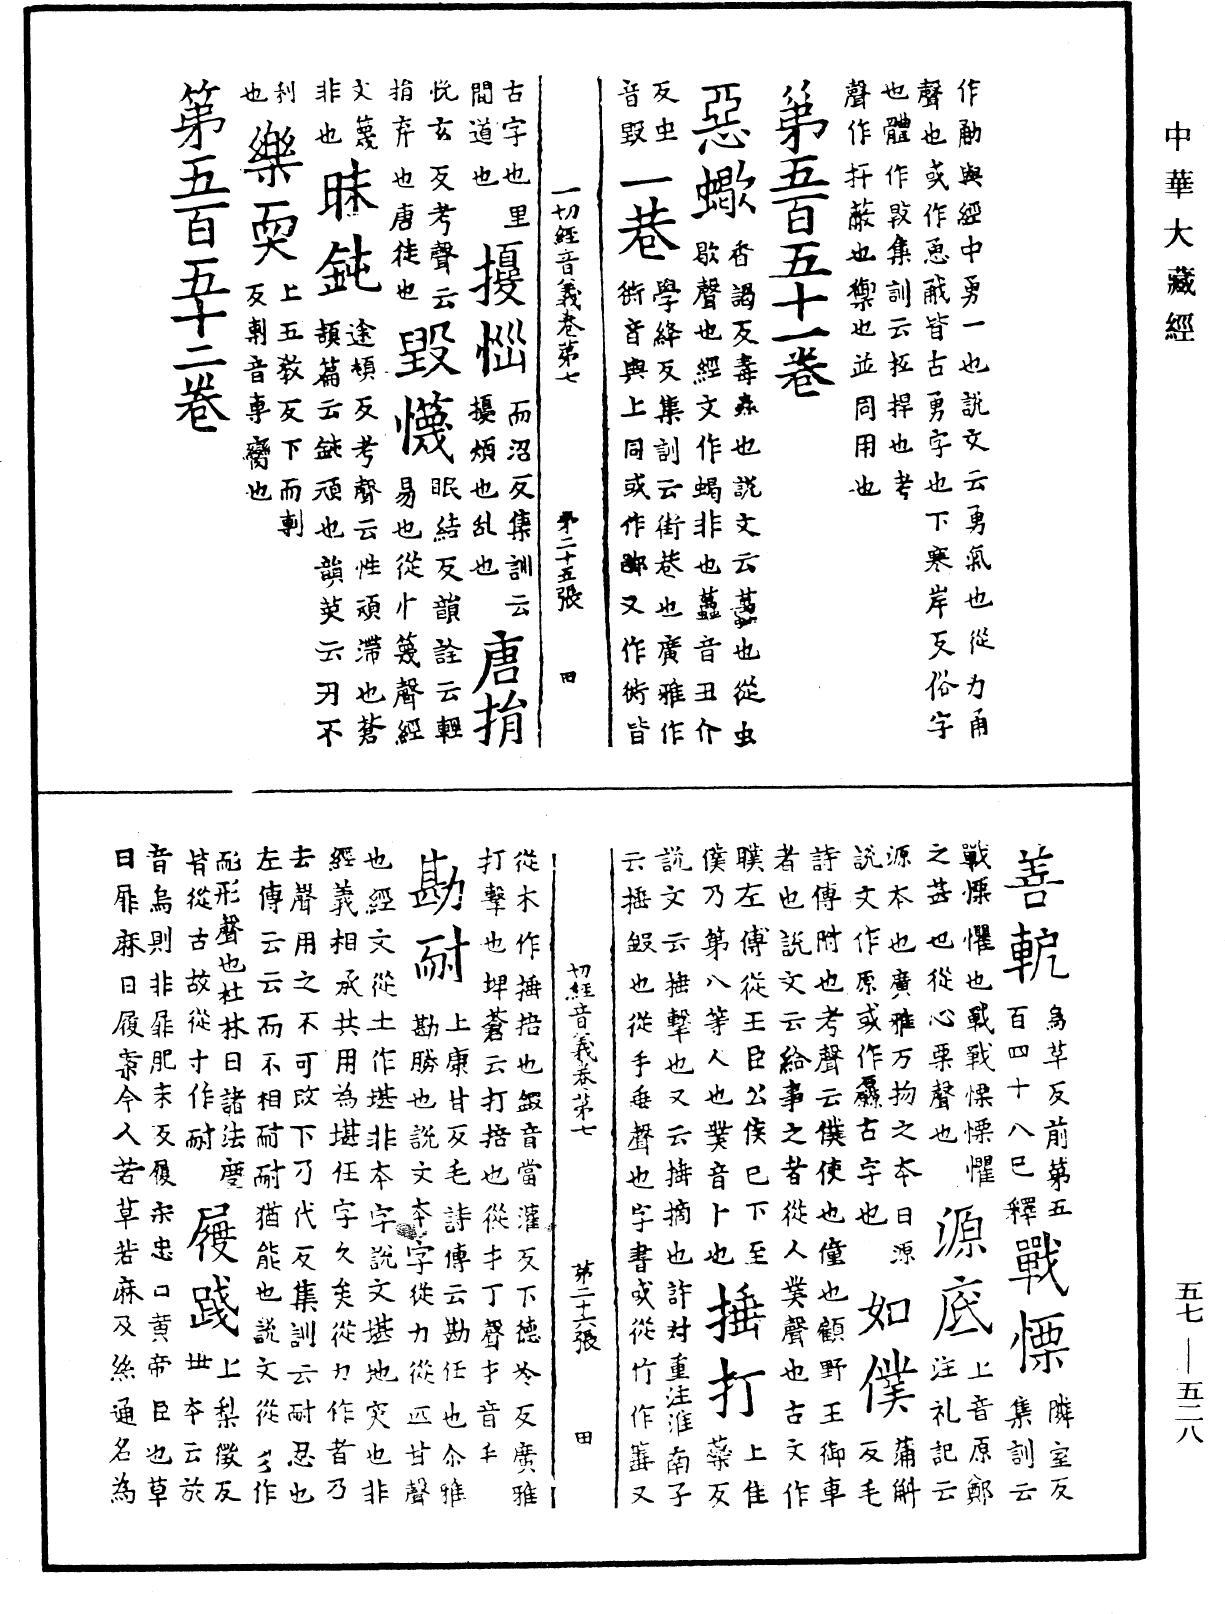 中華大藏經
作勈與經中勇一也說文云勇氣也從力甬
聲也或作恿㦷皆古勇字也下寒岸反俗字
也體作𢿛集訓云拒捍也考
聲作扞蔽也禦也並同用也
第五百五十一卷
惡蠍 香謁反毒虫也說文云蠆也從虫
歇聲也經文作蝎非也蠆音丑介
反虫
音毀
一巷 學絳反集訓云街巷也廣雅作
衖音與上同或作䣈又作衖皆
一切經音義卷第七 第二十五張 田
古字也里
間道也
擾惱 而沼反集訓云
擾煩也乱也
唐捐
悅玄反考聲云
捐弃也唐徒也
毀懱 眠結反韻詮云輕
易也從忄篾聲經
文篾
非也
昧鈍 途頓反考聲云性頑滯也蒼
頡篇云鈍頑也韻英云刃不
利
也
樂耎 上五教反下而剸
反剸音專臠也
第五百五十二卷
善軶 烏革反前第五
百四十八已釋
戰慄 隣室反
集訓云
戰慄懼也戰戰慄慄懼
之甚也從心栗聲也
源底 上音原鄭
注礼記云
源本也廣雅万物之本曰源
說文作原或作厵古字也
如僕 蒲斛
反毛
詩傳附也考聲云僕使也僮也顧野王御車
者也說文云給事之者從人菐聲也古文作
䑑左傳從王臣公侯巳下至
僕乃第八等人也菐音卜也
捶打 上隹
蘂反
說文云捶擊也又云捶擿也許對重注淮南子
云捶鍛也從手垂聲也字書或從竹作箠又
切經音義卷第七 第二十六張 田
從木作捶掊也鍛音當灌反下德冷反廣雅
打擊也埤蒼云打掊也從扌丁聲扌音手
勘耐 上康甘反毛詩傳云勘任也尒雅
勘勝也說文本字從力從匹甘聲
也經文從土作堪非本字說文堪地突也非
經義相承共用為堪任字久矣從力作者乃
去聲用之不可改下乃代反集訓云耐忍也
左傳云云而不相耐耐猶能也說文從彡作
耏形聲也杜林曰諸法度
皆從古故從寸作耐
屦踐 上梨徵反
毌本云於
音烏則非扉肥末反履宋忠曰黃帝臣也草
曰屝麻曰屦案今人若草若麻及絲通名為
五七—五二八